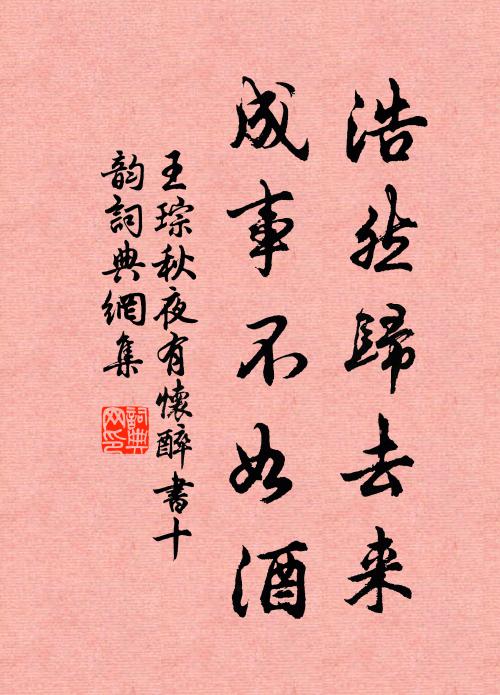 浩然歸去来
成事不如酒
王琮秋夜有懷醉書十
韵詞典網集
詞典網印